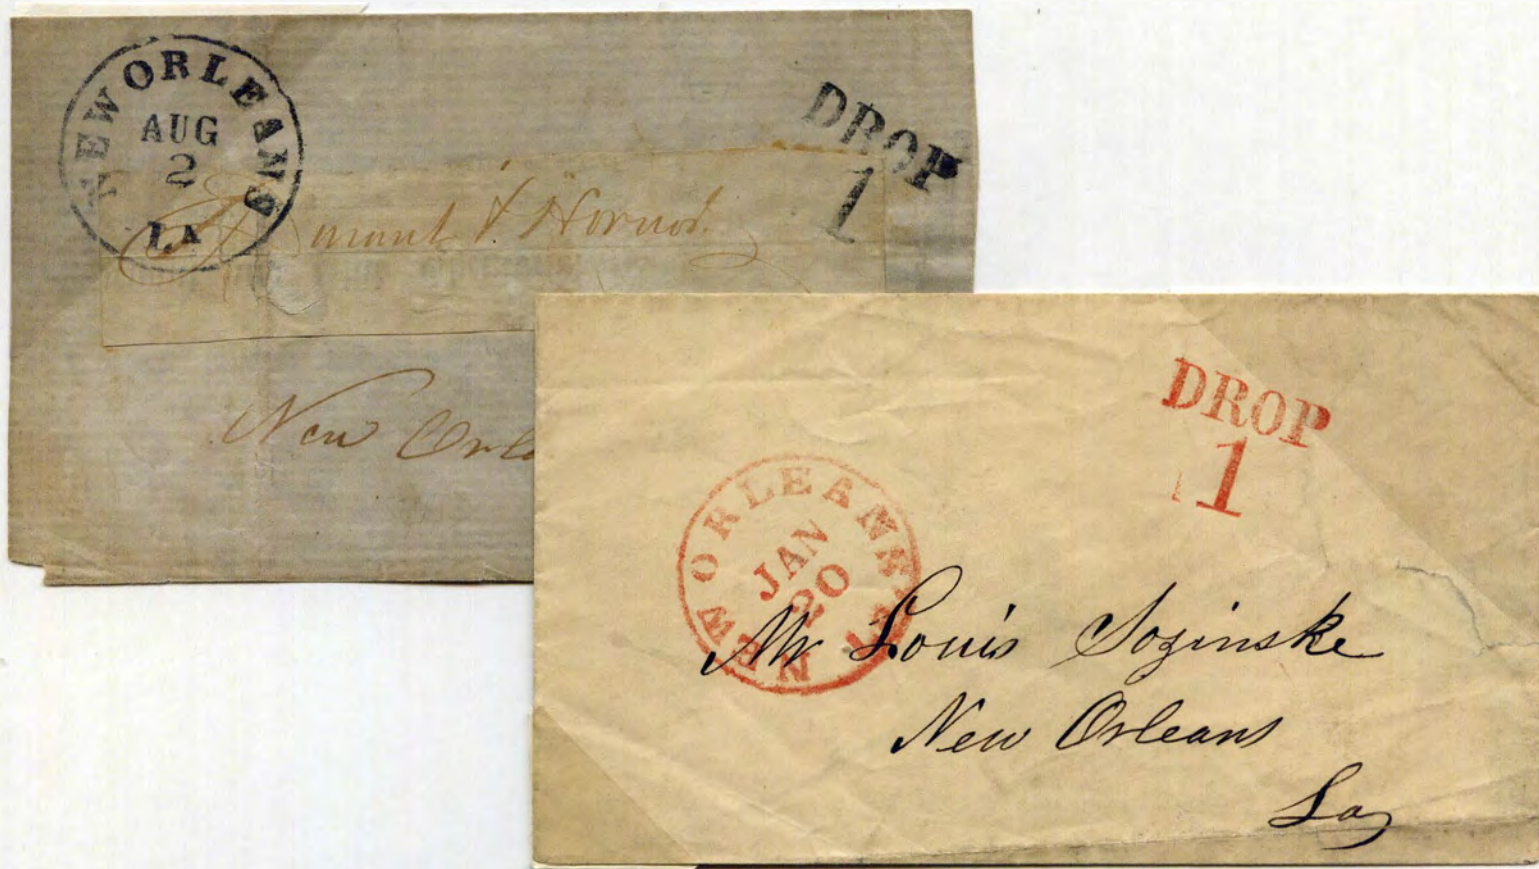 NEW ORLEANS
AUG
2
LA
DROP
1
& Hornor.
New Orle
DROP
1
NEW ORLEANS LA
JAN
20
Mr Louis Sozinske
New Orleans
La